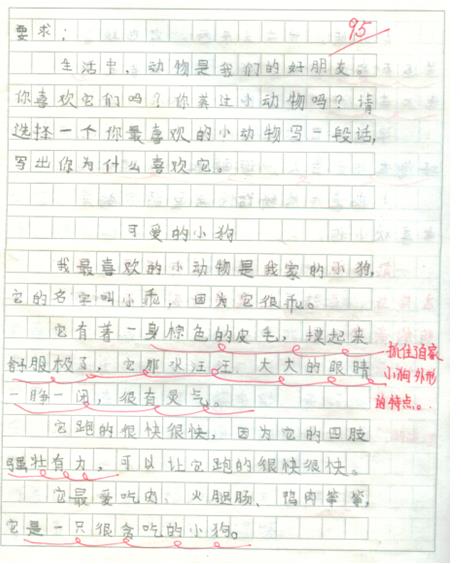 95
要求：
生活中，动物是我们的好朋友。
你喜欢它们吗？你养过小动物吗？请
选择一个你最喜欢的小动物写一段话，
写出你为什么喜欢它。
可爱的小狗
我最喜欢的小动物是我家的小狗，
它的名字叫小乖，因为它很乖。
它有著一身棕色的皮毛，摸起来
舒服极了，它那水汪汪、大大的眼睛
一睁一闭，很有灵气。
抓住了自家
小狗外形
的特点。
它跑的很快很快，因为它的四肢
强壮有力，可以让它跑的很快很快。
它最爱吃肉、火腿肠、鸭肉等等，
它是一只很贪吃的小狗。